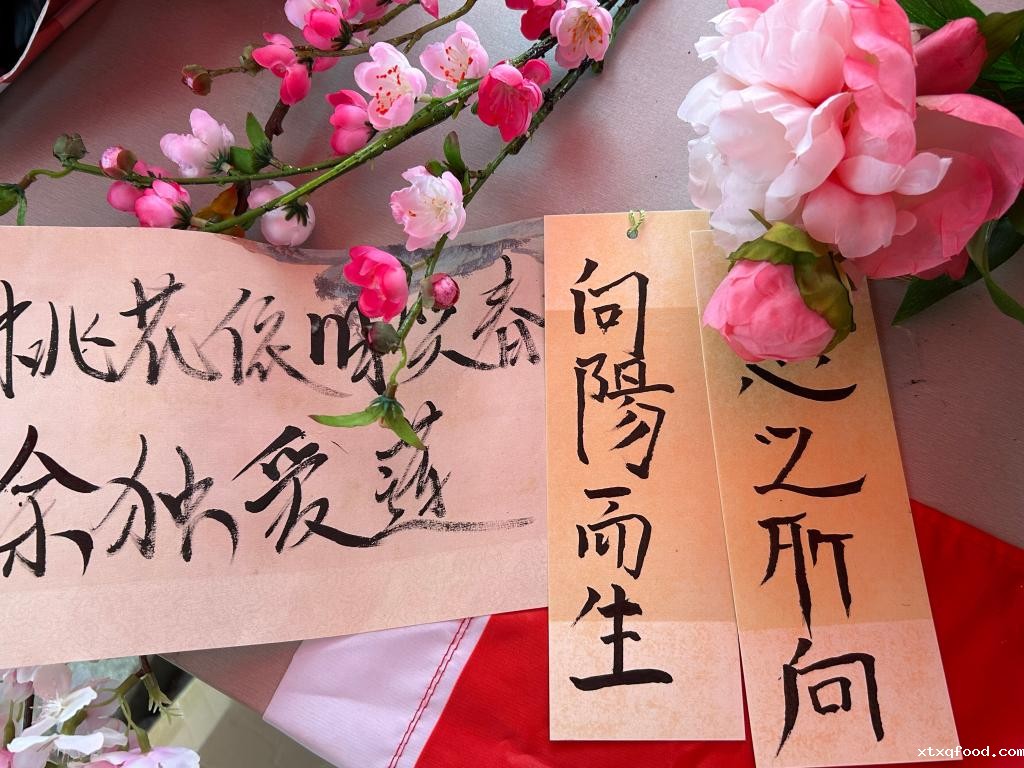 桃花依旧笑春
余独爱莲
向陽而生
心之所向
xtxqfood.com